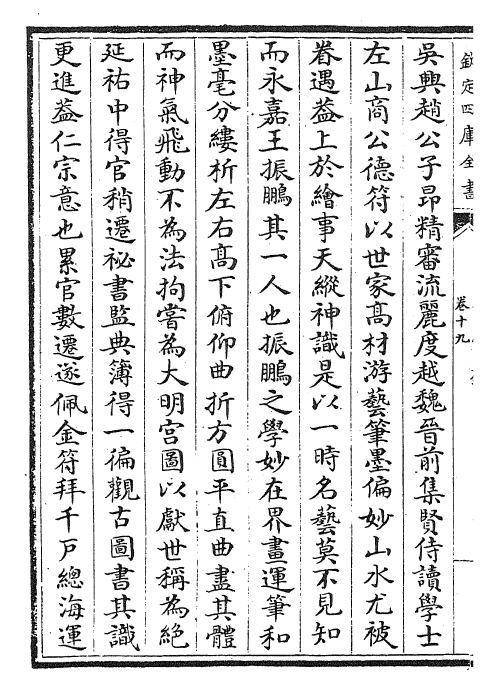 欽定四庫全書
卷十九
吳興趙公子昂精審流麗度越魏晉前集賢侍讀學士
左山商公德符以世家高材游藝筆墨偏妙山水尤被
眷遇葢上於繪事天縱神識是以一時名藝莫不見知
而永嘉王振鵬其一人也振鵬之學妙在界畫運筆和
墨毫分縷析左右高下俯仰曲折方圓平直曲盡其體
而神氣飛動不為法拘嘗為大明宫圖以獻世稱為絶
延祐中得官稍遷祕書監典簿得一偏觀古圖書其識
更進葢仁宗意也累官數遷遂佩金符拜千戶總海運